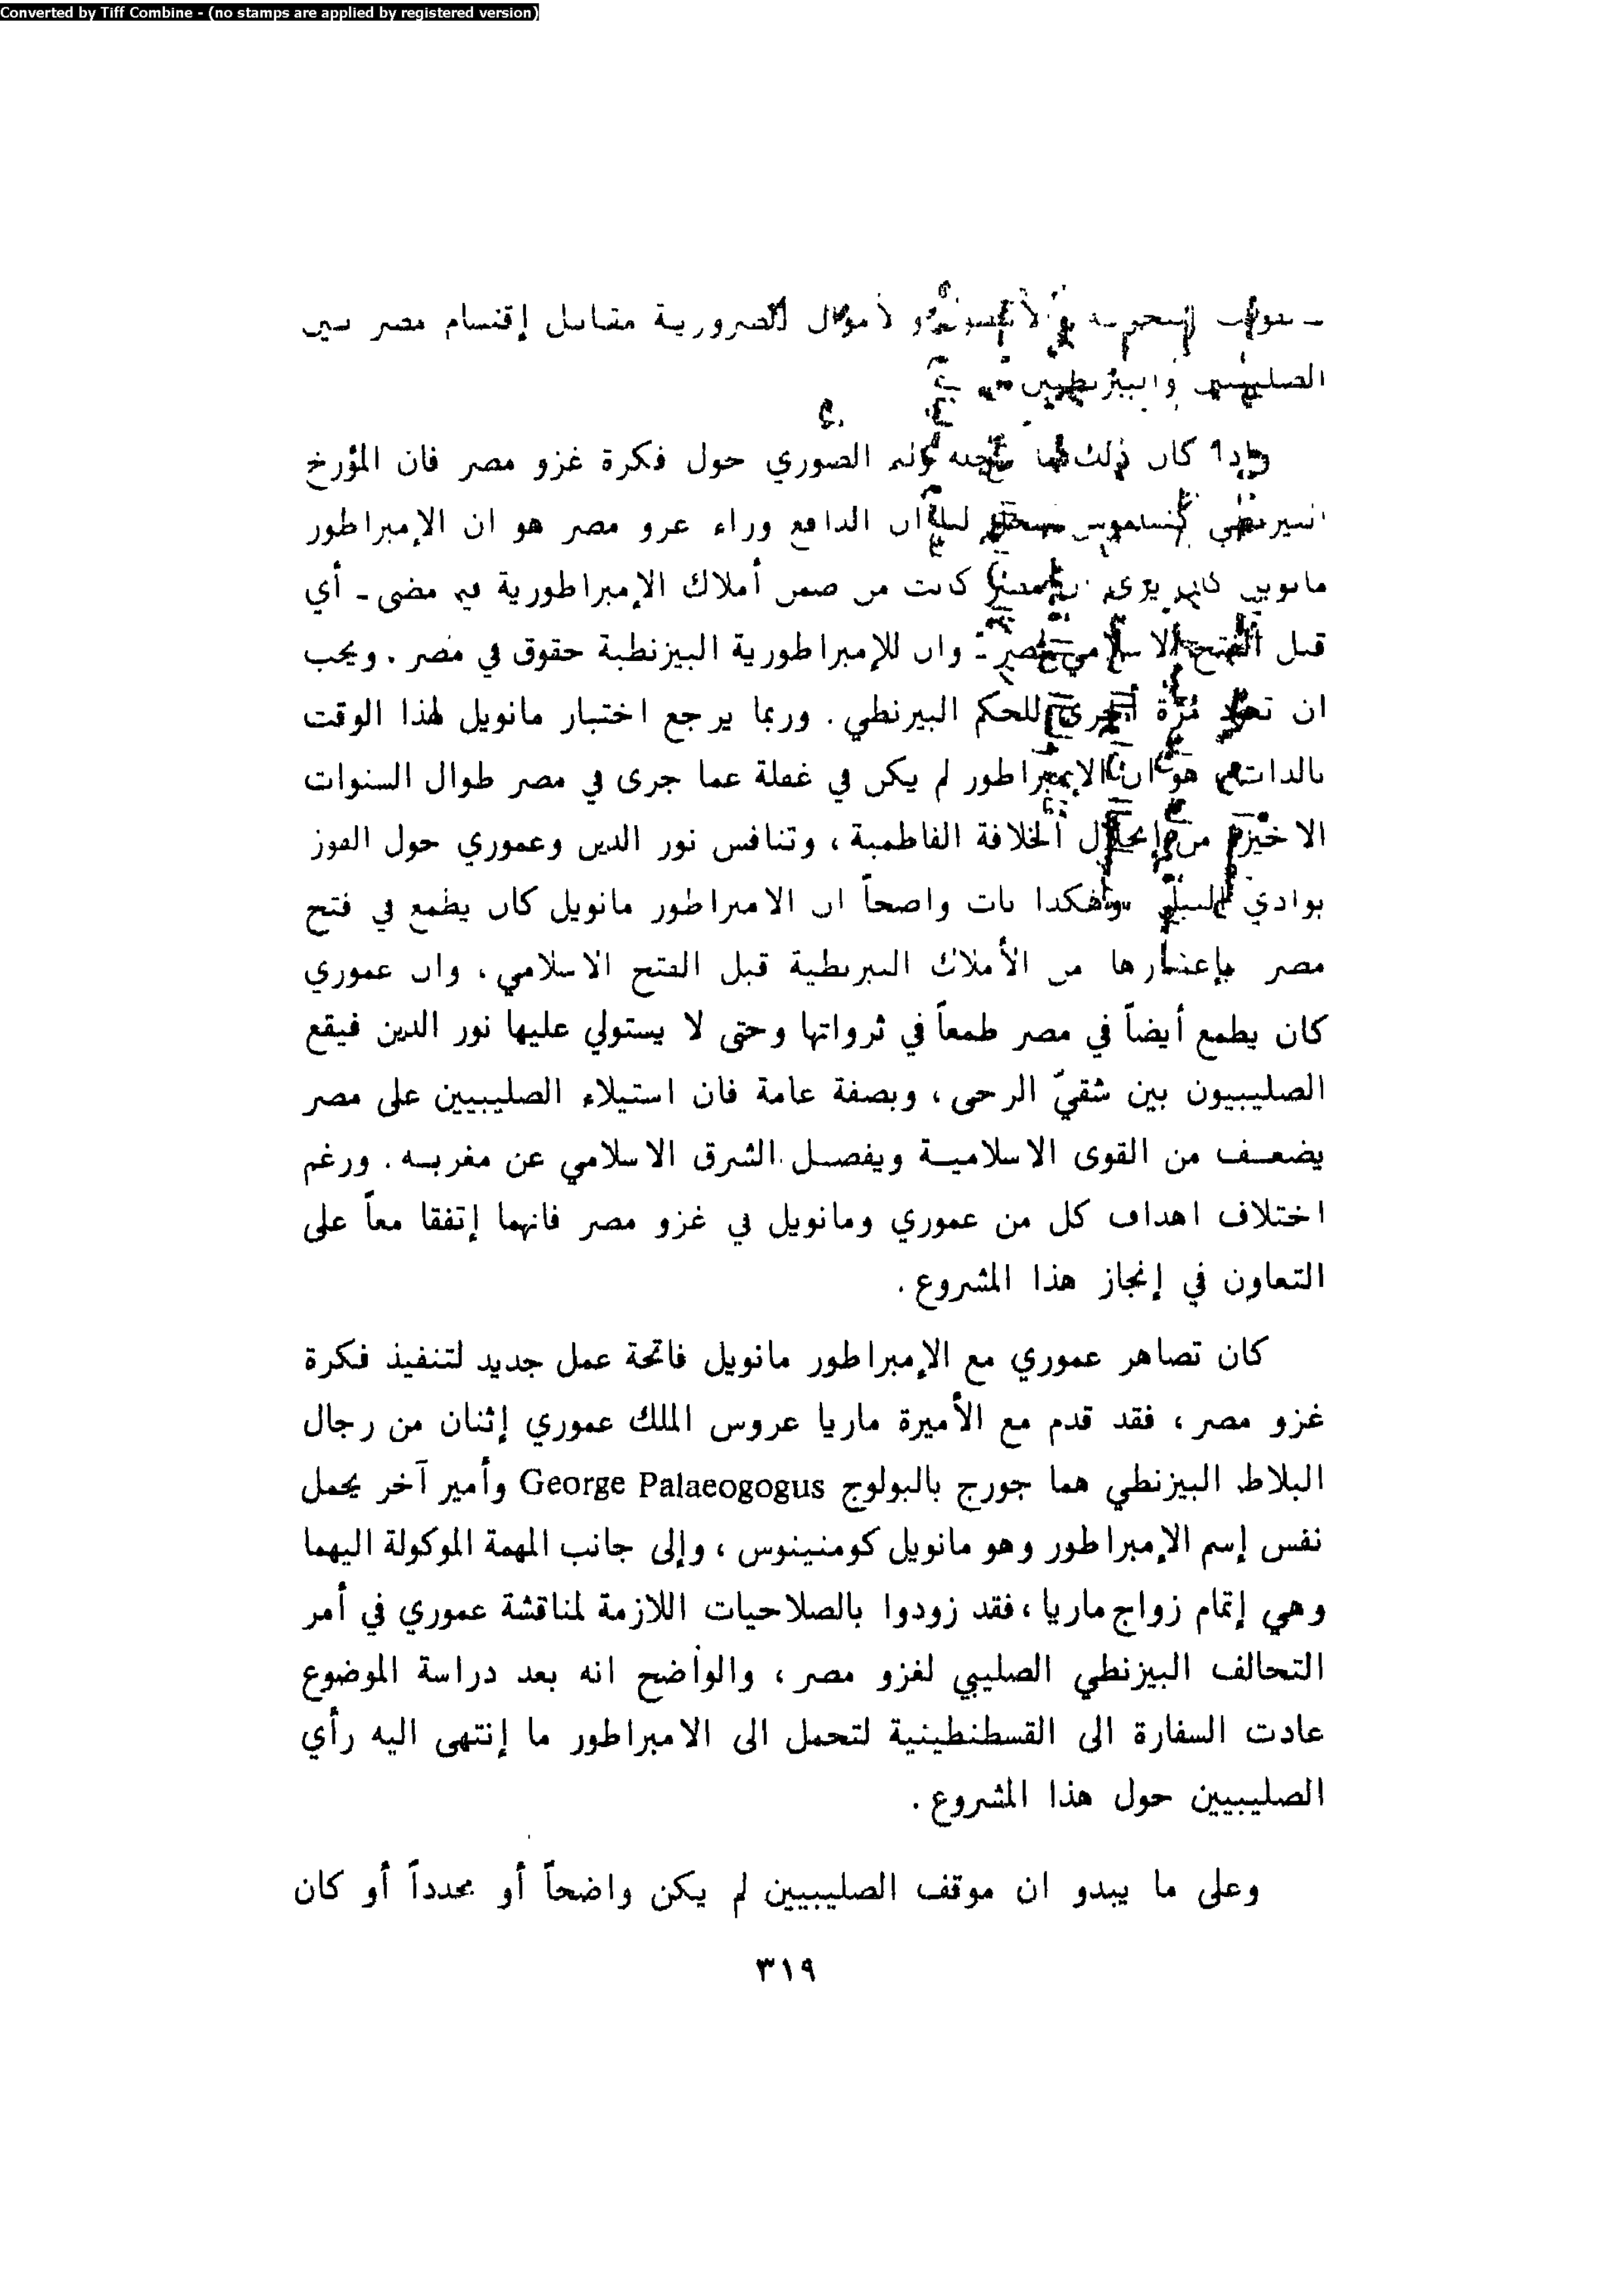 Converted by Tiff Combine - (no stamps are applied by registered version)
الضرورية مقابل إقتسام مصر بين
الصليبيين والبيزنطيين
وإذا كان ذلك الصوري حول فكرة غزو مصر فان المؤرخ
لنا ان الدافع وراء غزو مصر هو ان الإمبراطور
مانويل كان يرى كانت من ضمن أملاك الإمبراطورية فيما مضى - أي
قبل الفتح الاسلامي لمصر - وان للإمبراطورية البيزنطية حقوق في مصر . ويجب
ان تعود مرة أخرى للحكم البيزنطي . وربما يرجع اختيار مانويل لهذا الوقت
بالذات هو ان الإمبراطور لم يكن في غفلة عما جرى في مصر طوال السنوات
الاخيرة من إنحلال الخلافة الفاطمية ، وتنافس نور الدين وعموري حول الفوز
بوادي النيل وهكذا بات واضحاً ان الامبراطور مانويل كان يطمع في فتح
مصر بإعتبارها من الأملاك البيزنطية قبل الفتح الاسلامي ، وان عموري
كان يطمع أيضاً في مصر طمعاً في ثرواتها وحتى لا يستولي عليها نور الدين فيقع
الصليبيون بين شقيّ الرحى ، وبصفة عامة فان استيلاء الصليبيين على مصر
يضعـف من القوى الاسلاميـة ويفصـل الشرق الاسلامي عن مغربـه . ورغم
اختلاف اهداف كل من عموري ومانويل في غزو مصر فانهما إتفقا معاً على
التعاون في إنجاز هذا المشروع .
كان تصاهر عموري مع الإمبراطور مانويل فاتحة عمل جديد لتنفيذ فكرة
غزو مصر ، فقد قدم مع الأميرة ماريا عروس الملك عموري إثنان من رجال
البلاط البيزنطي هما جورج بالبولوج George Palaeogogus وأمير آخر يحمل
نفس إسم الإمبراطور وهو مانويل كومنينوس ، وإلى جانب المهمة الموكولة اليهما
وهي إتمام زواج ماريا ، فقد زودوا بالصلاحيات اللازمة لمناقشة عموري في أمر
التحالف البيزنطي الصليبي لغزو مصر ، والواضح انه بعد دراسة الموضوع
عادت السفارة الى القسطنطينية لتحمل الى الامبراطور ما إنتهى اليه رأي
الصليبيين حول هذا المشروع .
وعلى ما يبدو ان موقف الصليبيين لم يكن واضحاً أو محدداً أو كان
٣١٩